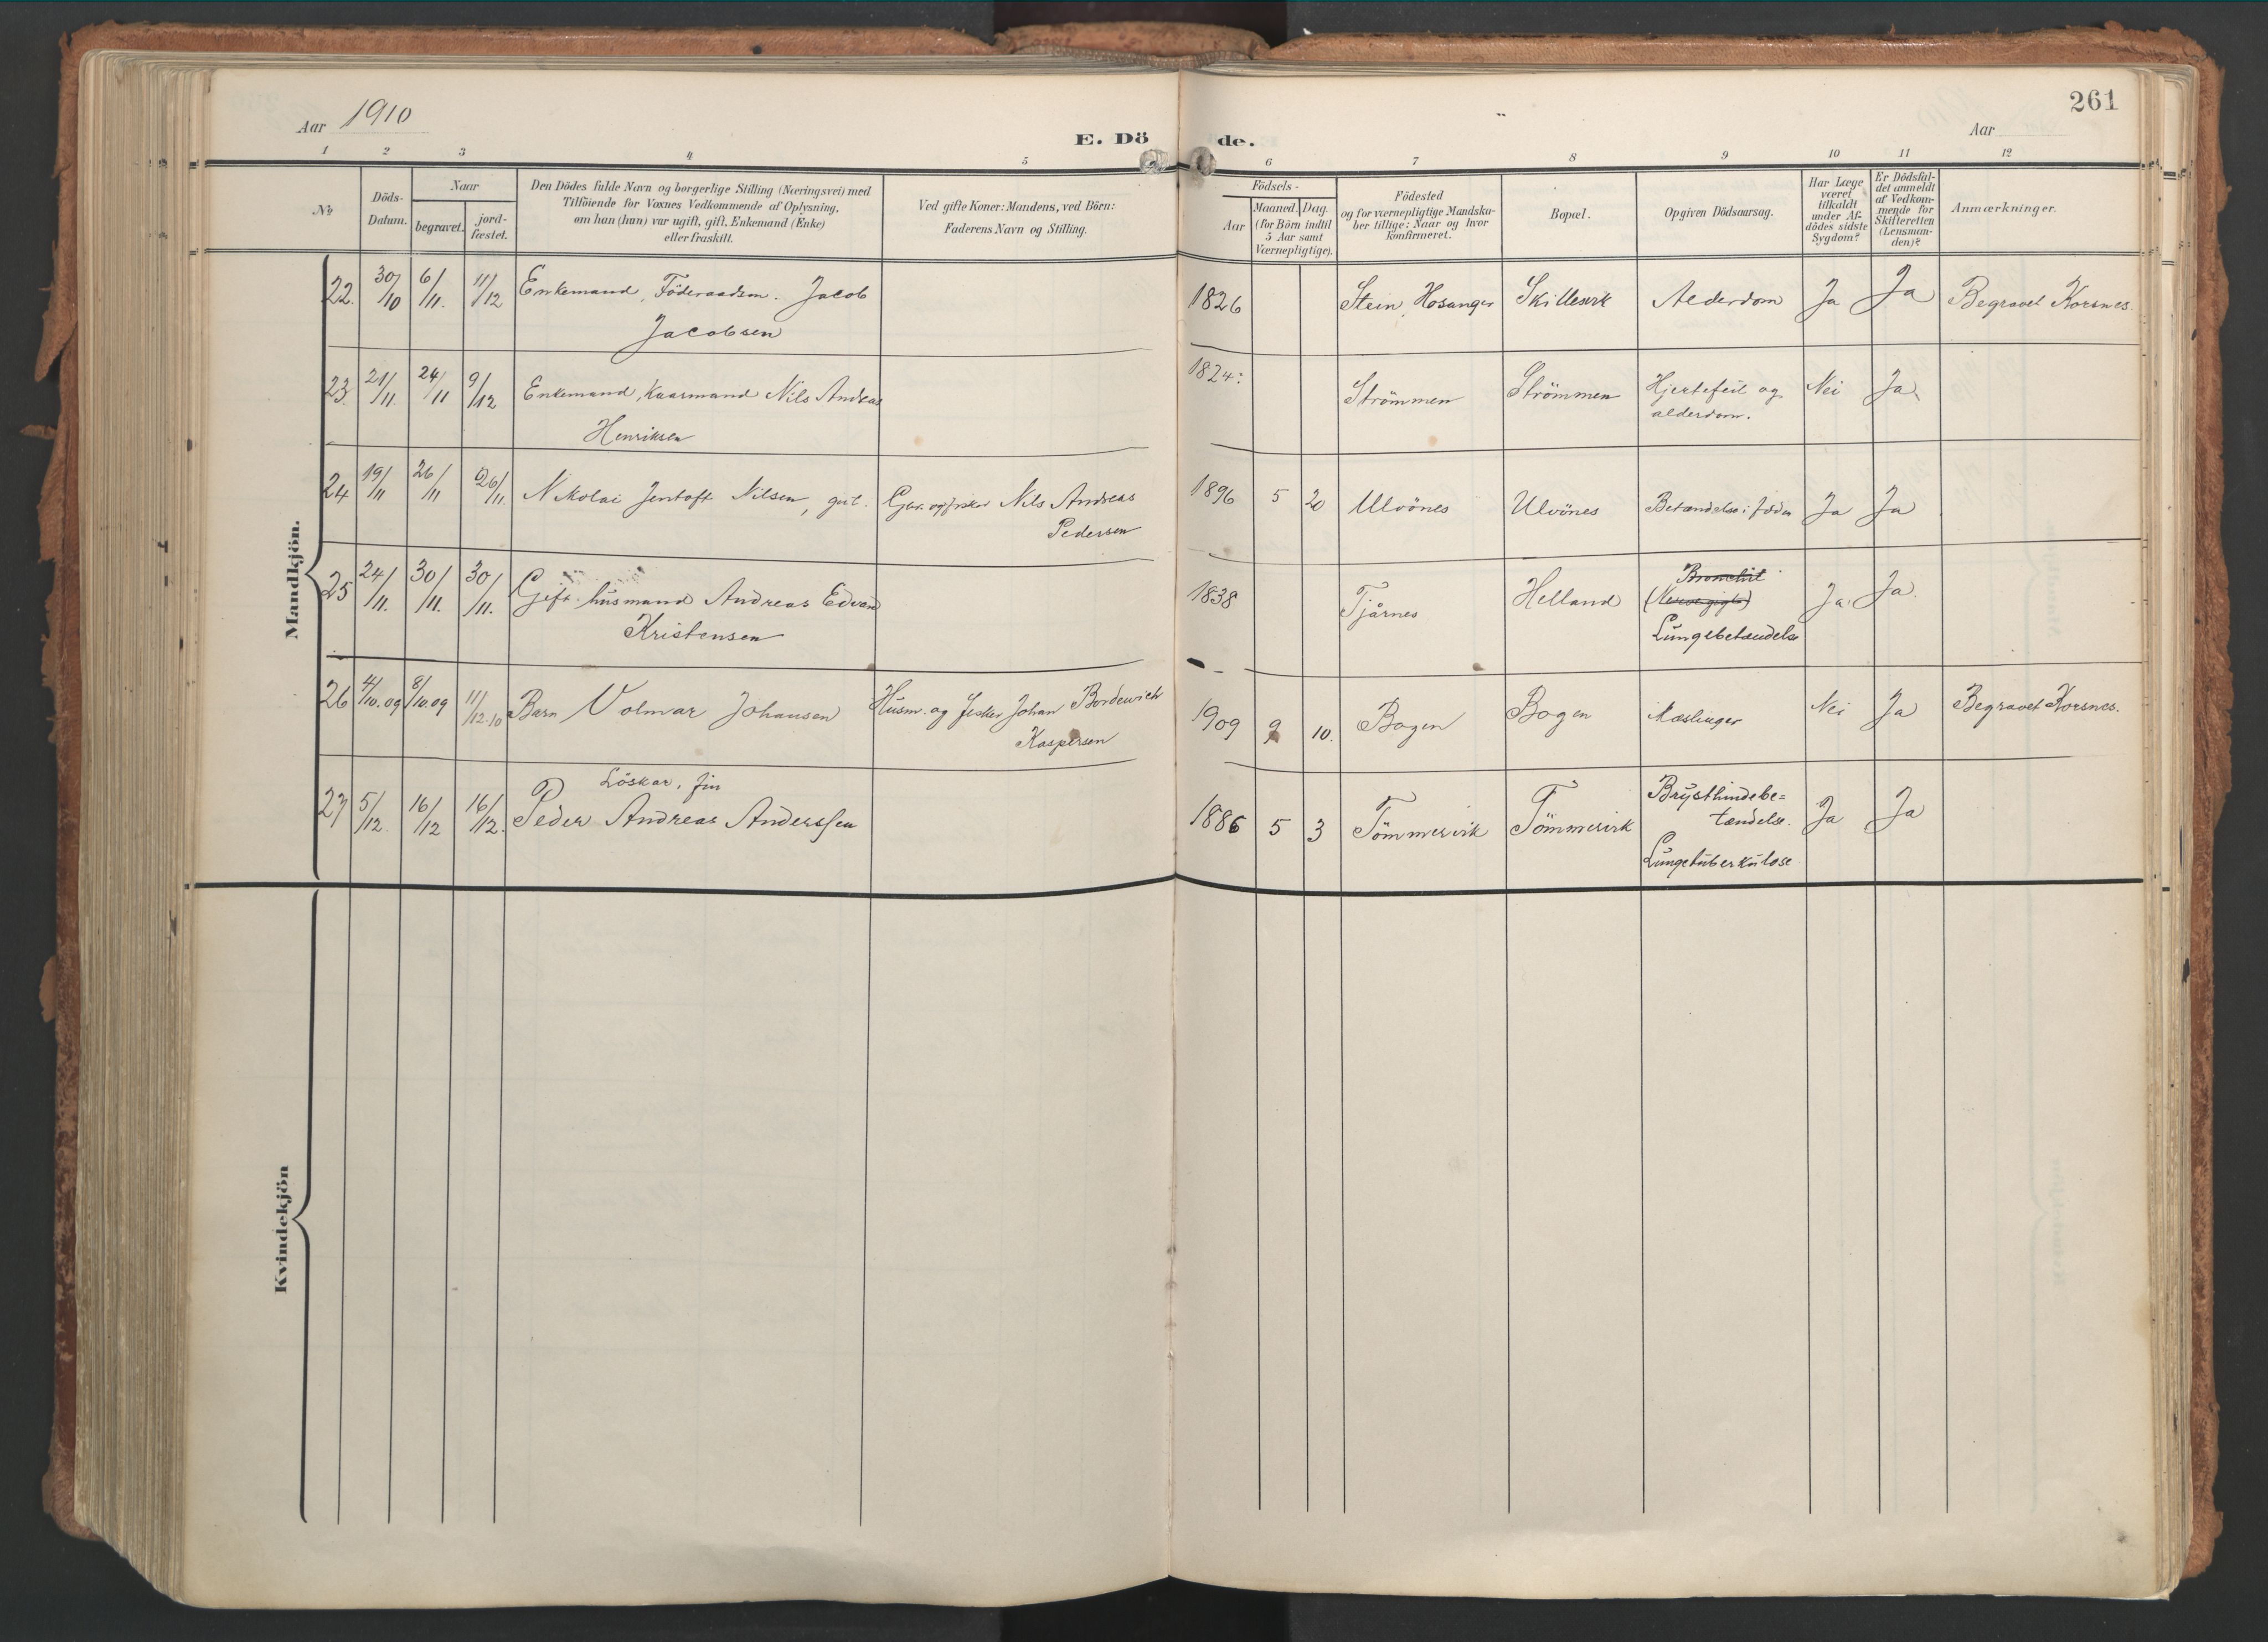 Aar 1910
E. Döde.
Aar
261
1 2 3 4 5 6 7 8 9 10 11 12
No
Döds-Datum.
Naar
begravet.
jord-fæstet.
Den Dödes fulde Navn og borgerlige Stilling (Næringsvei) med
Tilföiende for Voxnes Vedkommende af Oplysning,
om han (hun) var ugift, gift, Enkemand (Enke)
eller fraskilt.
Ved gifte Koner: Mandens, ved Börn:
Faderens Navn og Stilling.
Födsels-
Aar
Maaned. Dag.
(for Börn indtil
5 Aar samt
Værnepligtige).
Födested
og for værnepligtige Mandska-
ber tillige: Naar og hvor
konfirmeret.
Bopæl.
Opgiven Dödsaarsag.
Har Læge
været
tilkaldt
under Af-
dödes sidste
Sygdom?
Er Dödsfal-
det anmeldt
af Vedkom-
mende for
Skifteretten
(Lensman-
den)?
Anmærkninger.
Mandkjön.
22. 30/10 6/11. 11/12 Enkemand, Föderaadsm. Jacob 1826 Stein, Hosanger Skillesvik Alderdom Ja Ja Begravet Korsnes.
Jacobsen
23. 21/11. 24/11 9/12 Enkemand, Kaarmand Nils Andreas 1824: Strömmen Strömmen Hjertefeil og Nei Ja
Henriksen alderdom.
24 19/11 26/11 26/11. Nikolai Jentoft Nilsen, gut. Gaar. og fisker Nils Andreas 1896 5 20 Ulvönes Ulvönes Betændelse i foden Ja Ja
Pedersen
25 24/11. 30/11. 30/11. Gift husmand Andreas Edvard 1838 Tjårnes Helland Bronchit Ja Ja.
Kristensen (Nervegigt)
Lungebetændelse
26 4/10.09 8/10.09 11/12.10 Barn Volmar Johansen Husm. og fisker Johan Bordewich 1909 9 10. Bogen Bogen Mæslinger Nei Ja Begravet Korsnes.
Kaspersen
Löskar, fin
27 5/12. 16/12 16/12. Peder Andreas Anderssen 1886 5 3 Tömmervik Tömmervik Brysthindebe= Ja Ja
tændelse.
Lungetuberkulose
Kvindekjön